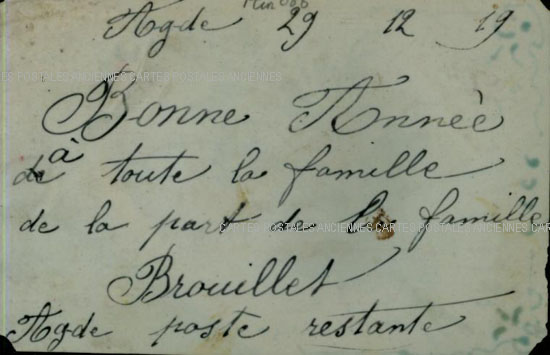 Agde 29 12 19
CARTES POSTALES ANCIENNES CARTES POSTALES ANCIENNES
Bonne Année
à
de toute la famille
de la part de la famille
CARTES POSTALES ANCIENNES CARTES POSTALES
Brouillet
Agde poste restante